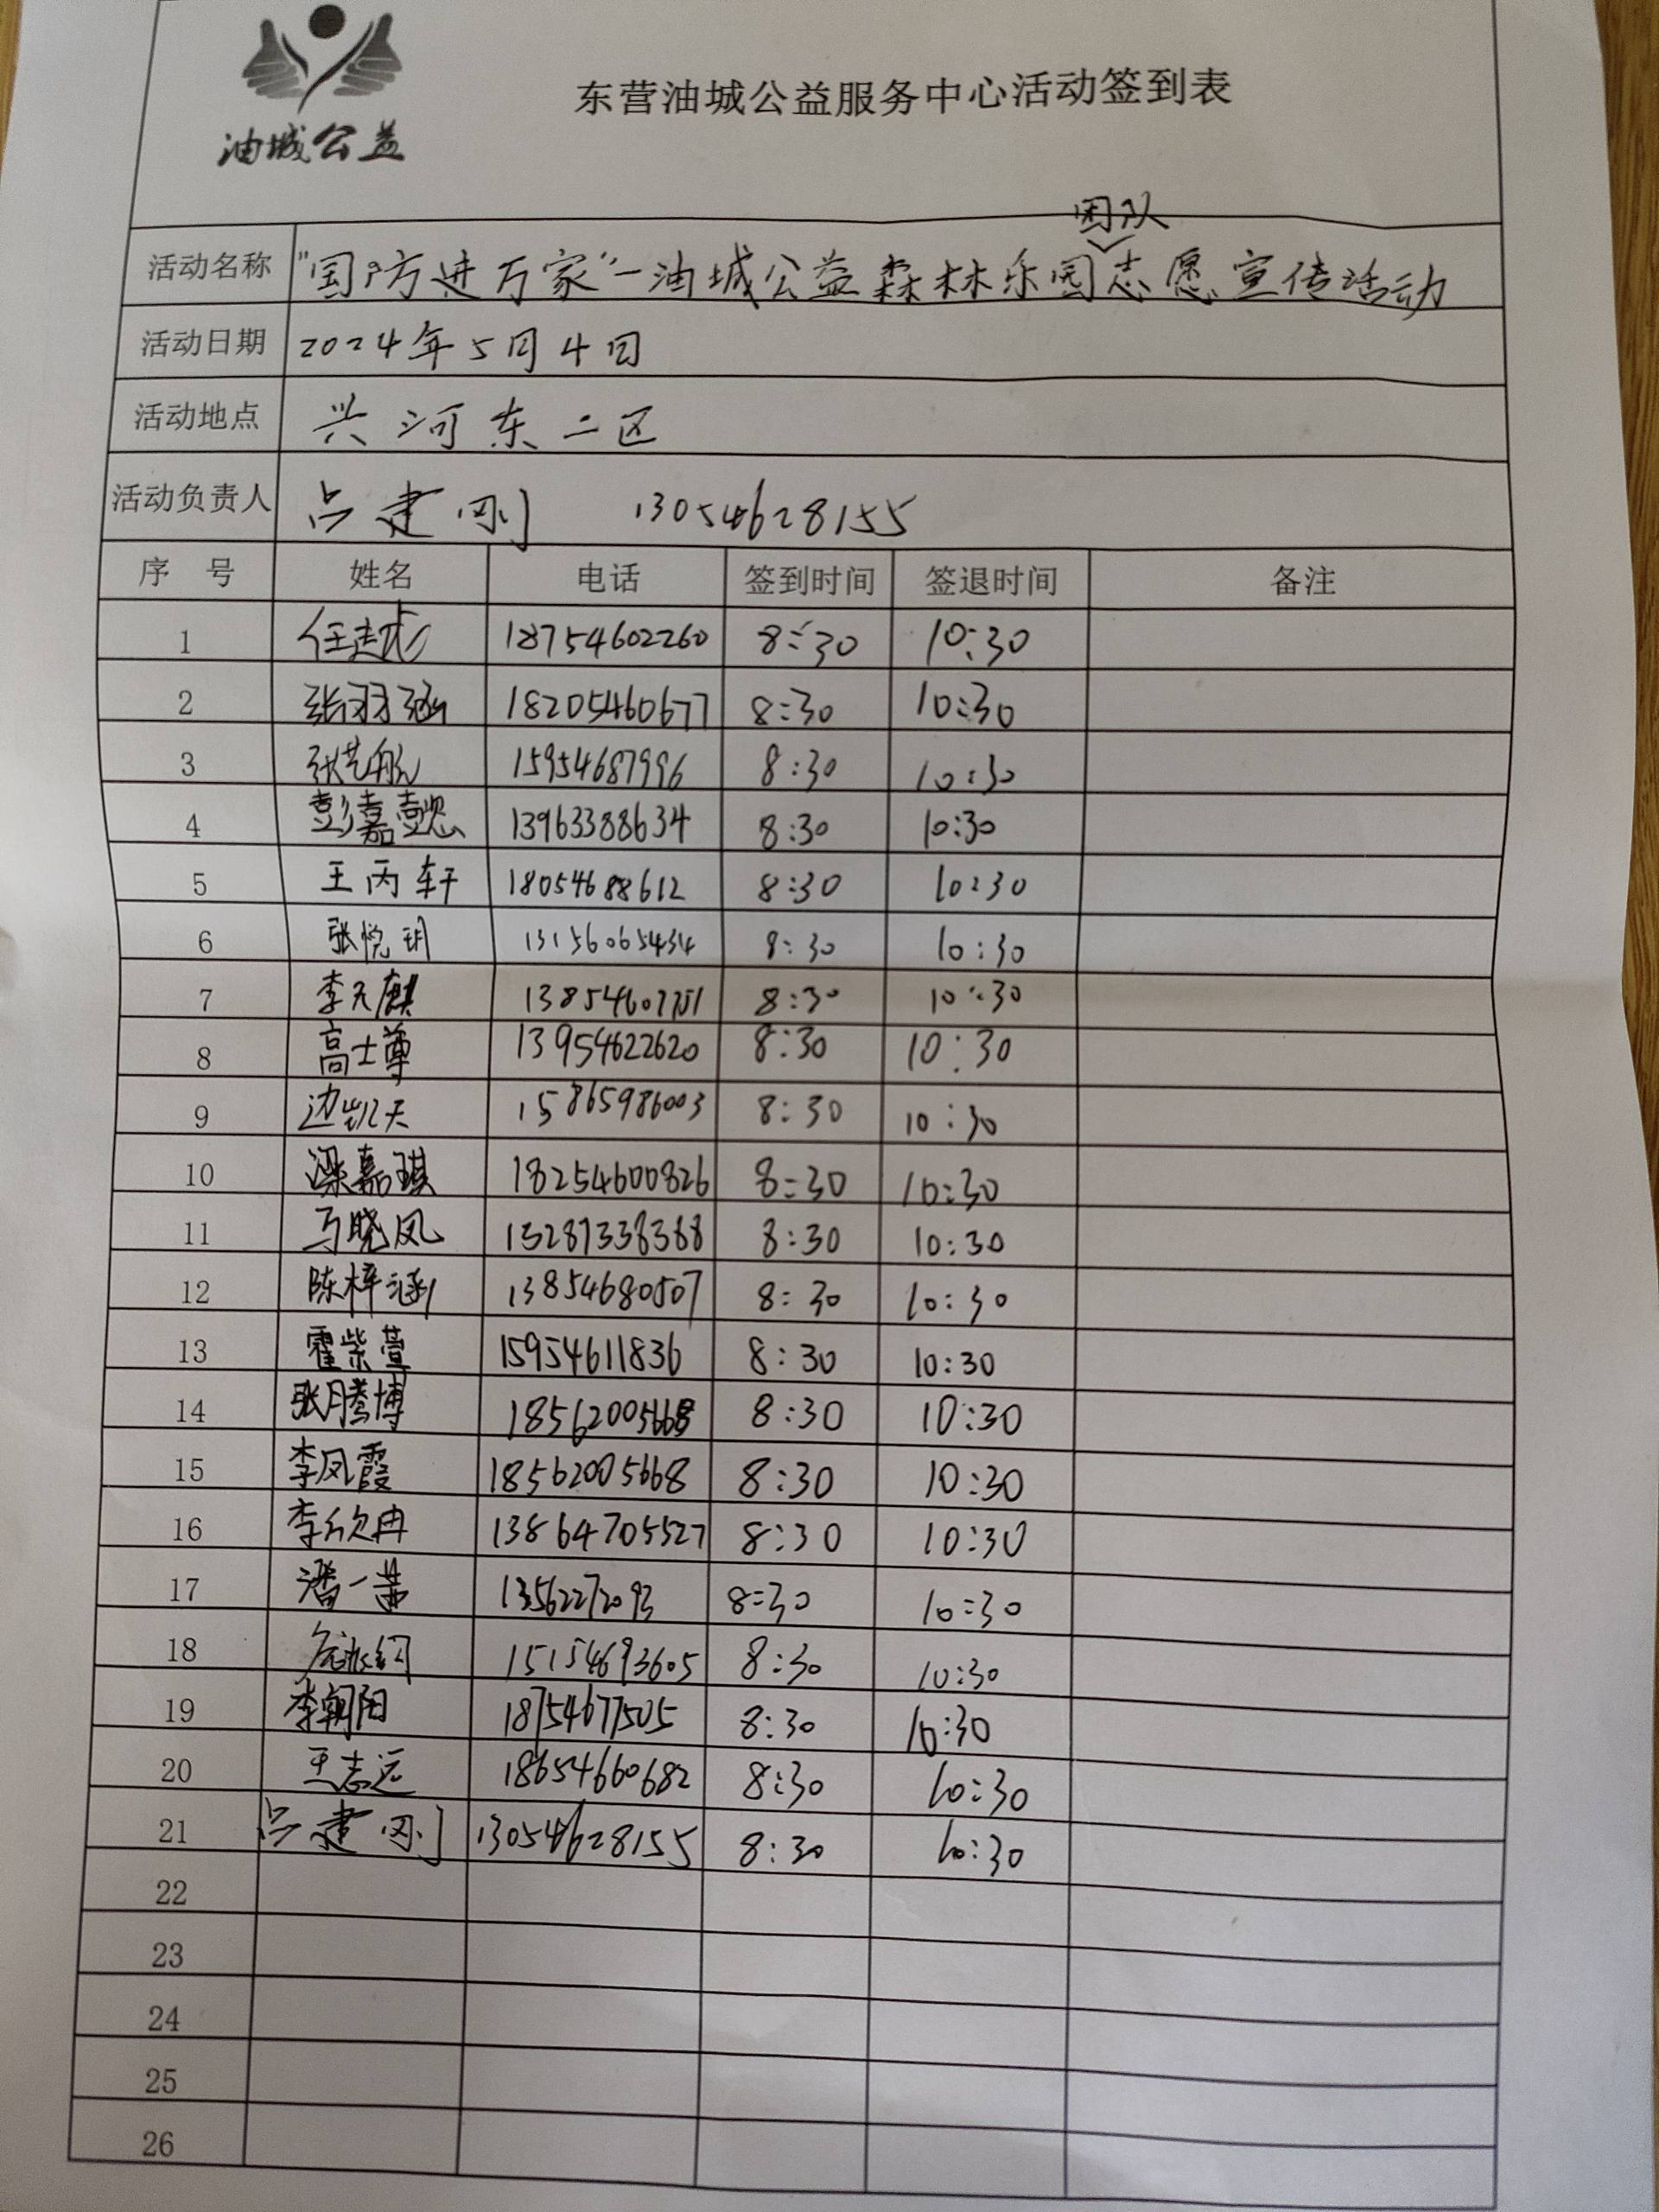 油城公益
东营油城公益服务中心活动签到表
团队
活动名称 "国防进万家"-油城公益森林乐园志愿宣传活动
活动日期 2024年5月4日
活动地点 兴河东二区
活动负责人 吕建刚 13054628155
序 号 姓名 电话 签到时间 签退时间 备注
1 18754602260 8:30 10:30
2 张羽涵 18205460677 8:30 10:30
3 张艺航 15954687996 8:30 10:30
4 彭嘉懿 13963388634 8:30 10:30
5 王丙轩 18054688612 8:30 10:30
6 张悦玥 13156065434 8:30 10:30
7 李天麒 8:30 10:30
8 高士尊 13954622620 8:30 10:30
9 边凯天 15865986003 8:30 10:30
10 梁嘉琪 18254600826 8:30 10:30
11 马晓凤 8:30 10:30
12 陈梓涵 13854680507 8:30 10:30
13 霍紫萱 15954611836 8:30 10:30
14 张腾博 18562005668 8:30 10:30
15 李凤霞 18562005668 8:30 10:30
16 李欣冉 13864705527 8:30 10:30
17 潘一 13562272093 8:30 10:30
18 15154693605 8:30 10:30
19 李朝阳 18754677505 8:30 10:30
20 王志远 18654660682 8:30 10:30
21 吕建刚 13054628155 8:30 10:30
22
23
24
25
26